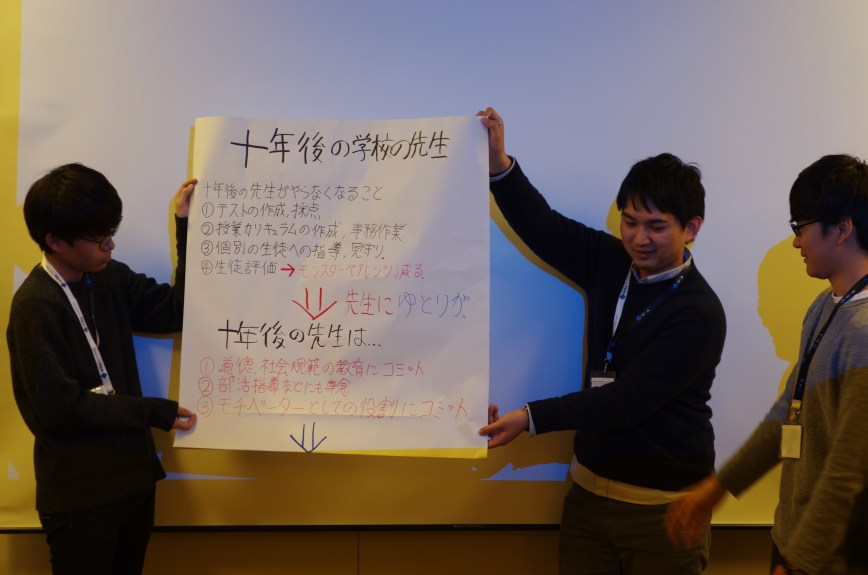 十年後の学校の先生
十年後の先生がやらなくなること
①テストの作成,採点
②授業カリキュラムの作成,事務作業
③個別の生徒への指導,見守り
④生徒評価→モンスターペアレンツ減る。
先生にゆとりが、
十年後の先生は…
①道徳、社会規範の教育にコミット
②部活指導などにも専念
③モチベーターとしての役割にコミット